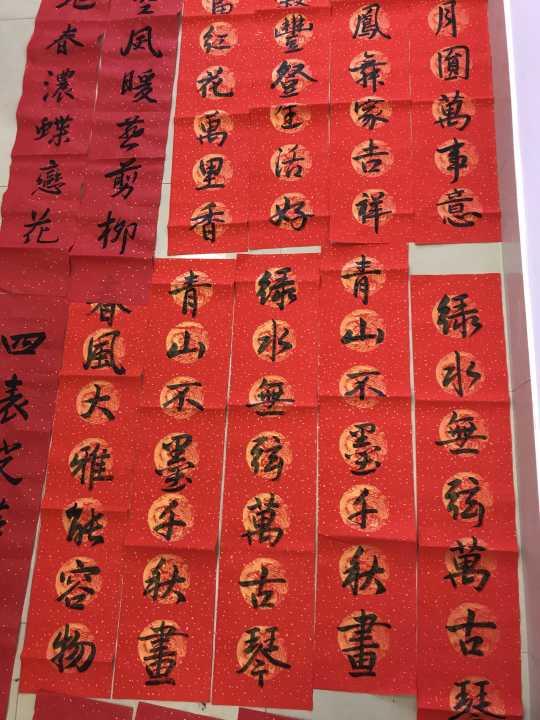 月圓萬事意
鳳舞家吉祥
豐登生活好
紅花萬里香
風暖芸剪柳
春濃蝶戀花
绿水無弦萬古琴
青山不墨千秋畫
绿水無弦萬古琴
青山不墨千秋畫
春風大雅能容物
四表